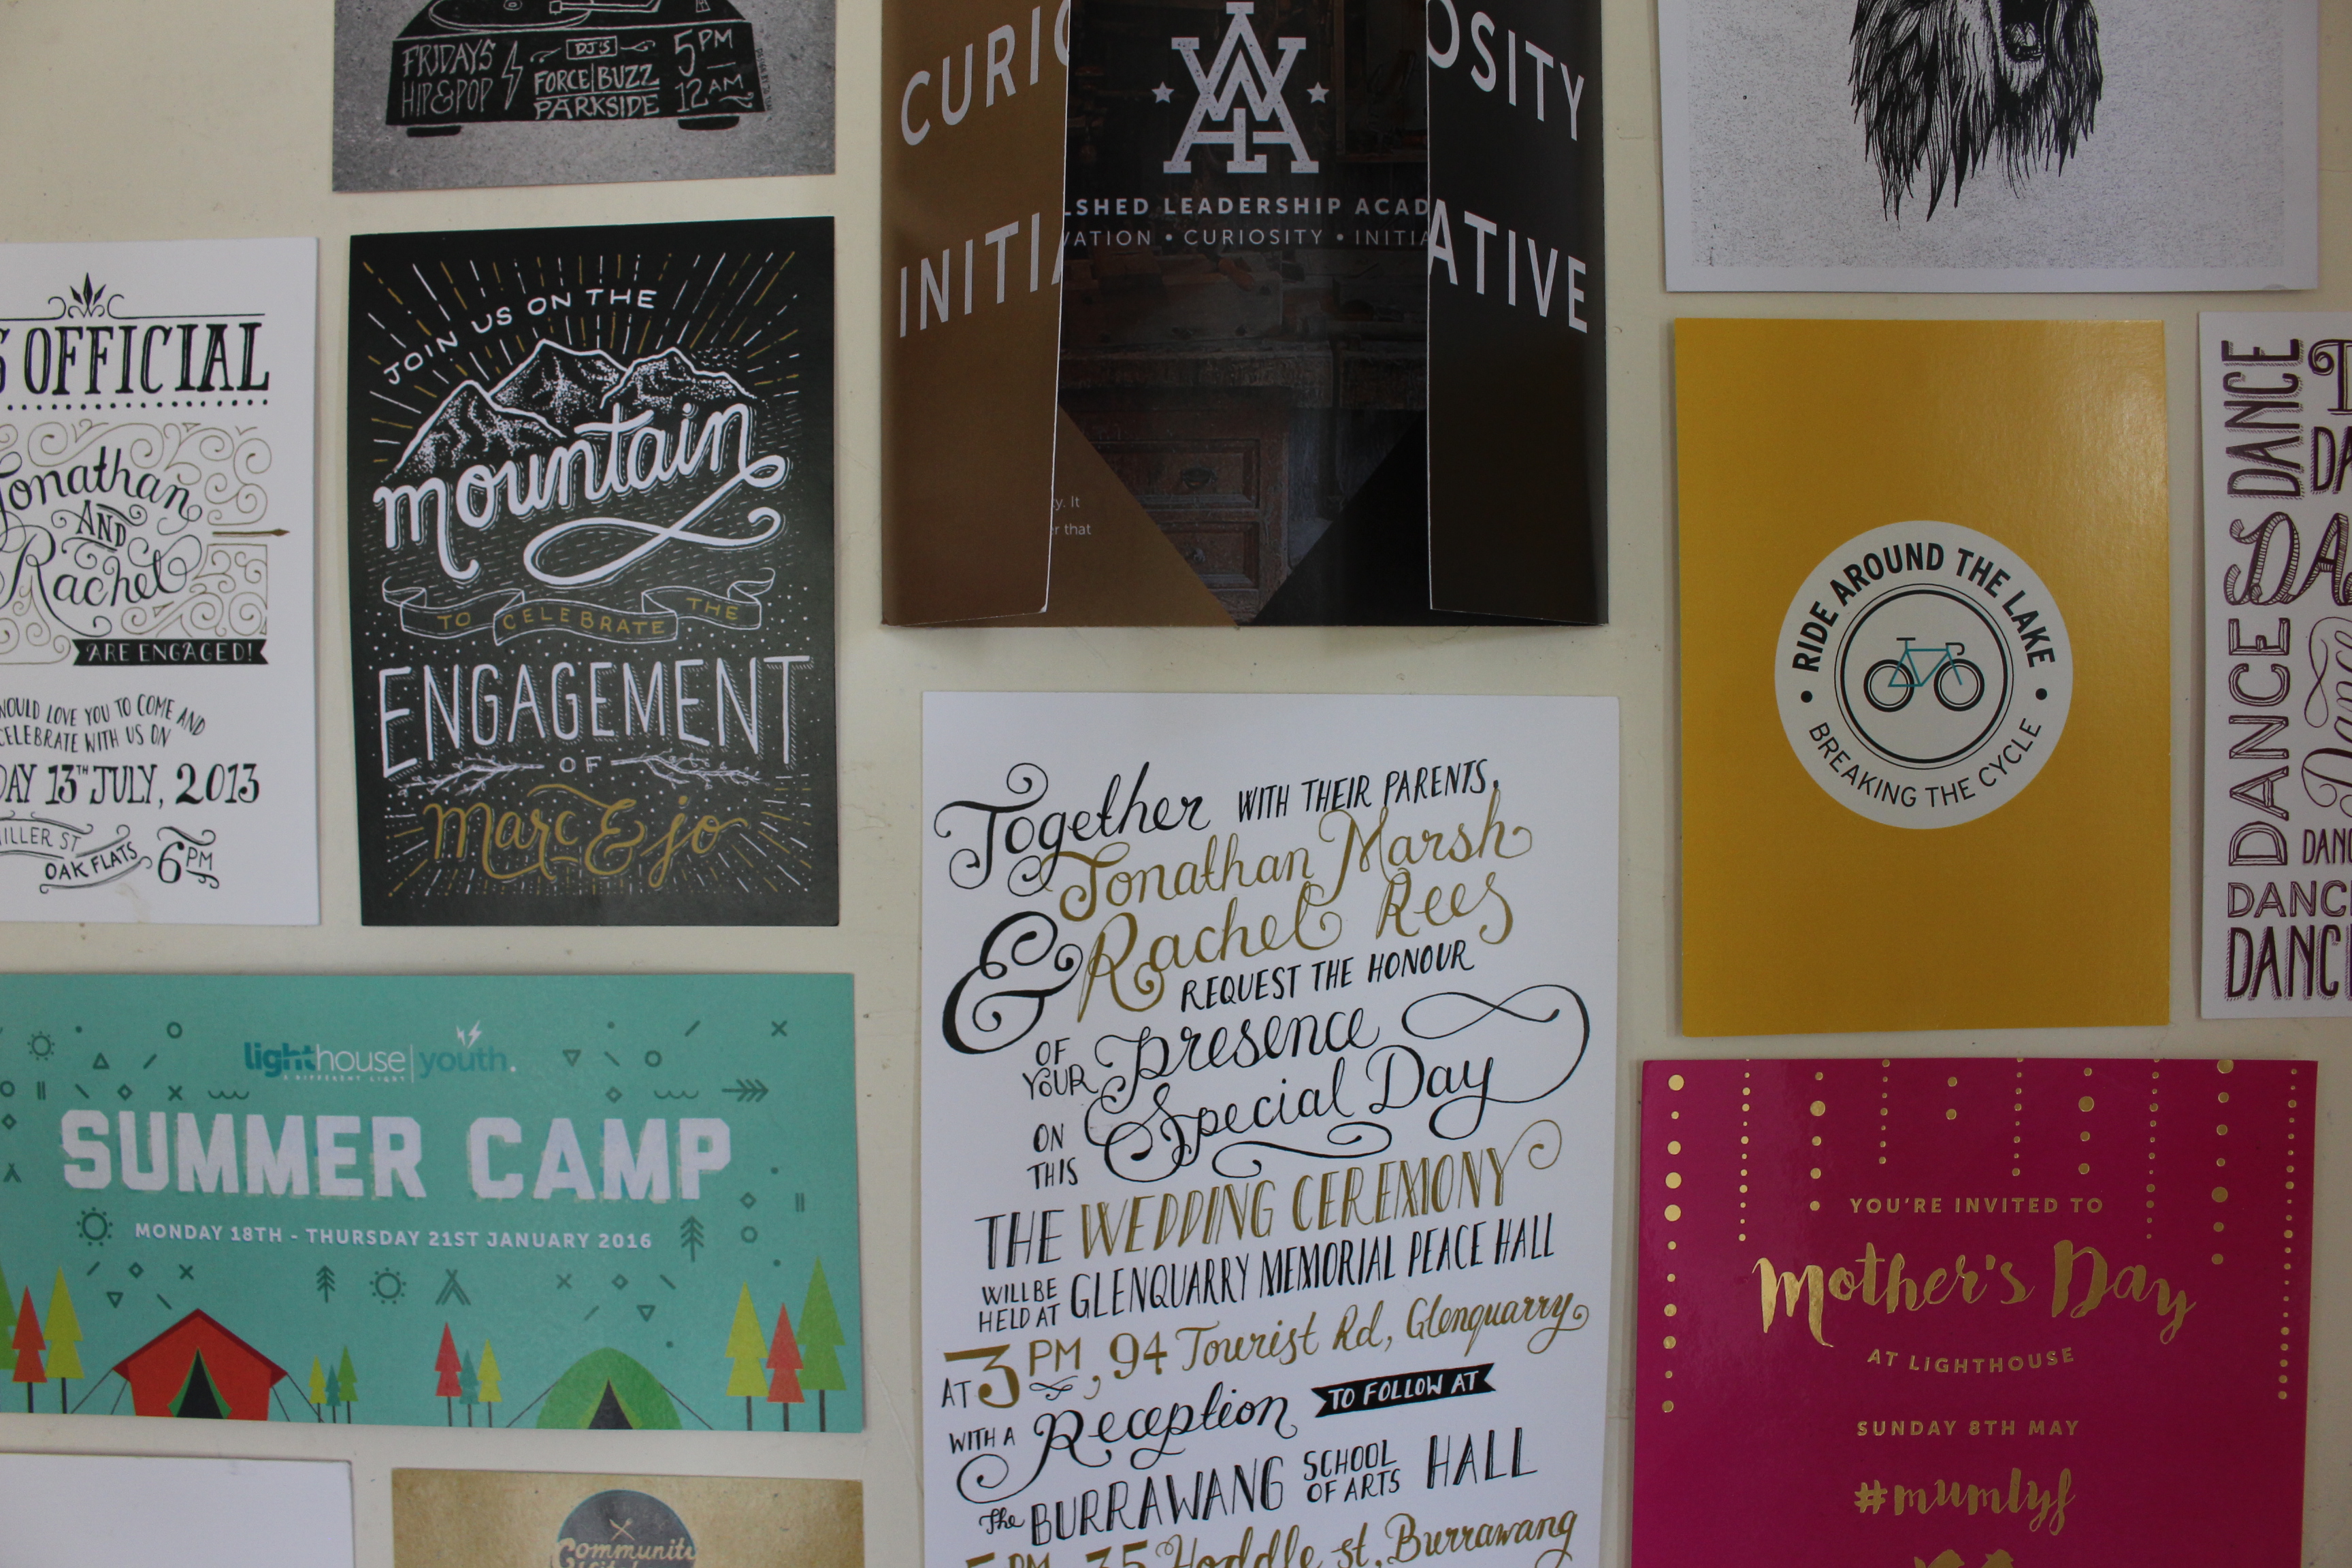 FRIDAYS
HIP&POP
DJ'S
FORCE|BUZZ
PARKSIDE
5PM
12AM
CURIO
OSITY
LSHED LEADERSHIP ACAD
VATION • CURIOSITY • INITIA
INITIA
ATIVE
y. It
r that
S OFFICIAL
Jonathan
AND
Rachel
ARE ENGAGED!
WOULD LOVE YOU TO COME AND
CELEBRATE WITH US ON
DAY 13TH JULY, 2013
MILLER ST
OAK FLATS
6PM
JOIN US ON THE
mountain
TO CELEBRATE THE
ENGAGEMENT
OF
Marc & jo
RIDE AROUND THE LAKE
• BREAKING THE CYCLE •
DANCE
DA
DANCE
DA
Dance
DANCE
DANC
DANC
DANC
Together WITH THEIR PARENTS,
Jonathan Marsh
& Rachel Rees
REQUEST THE HONOUR
OF YOUR Presence
ON THIS Special Day
THE WEDDING CEREMONY
WILL BE HELD AT GLENQUARRY MEMORIAL PEACE HALL
AT 3PM, 94 Tourist Rd, Glenquarry
WITH A Reception TO FOLLOW AT
The BURRAWANG SCHOOL OF ARTS HALL
5PM, 35 Hoddle st, Burrawang
lighthouse|youth.
A DIFFERENT LIGHT
SUMMER CAMP
MONDAY 18TH - THURSDAY 21ST JANUARY 2016
YOU'RE INVITED TO
Mother's Day
AT LIGHTHOUSE
SUNDAY 8TH MAY
#mumlyf
Community